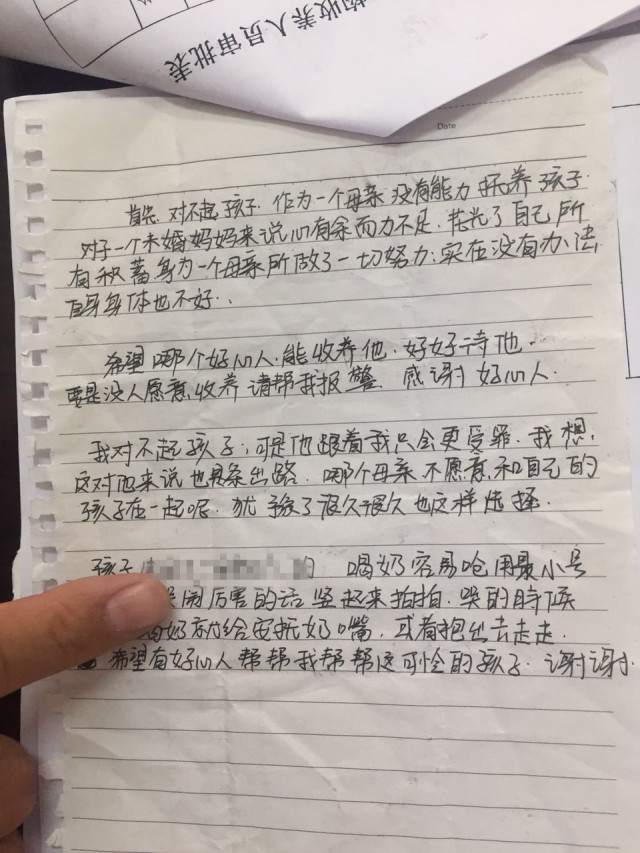 构收养人员审批表
Date
首先.对不起孩子.作为一个母亲没有能力抚养孩子
对于一个未婚妈妈来说心有余而力不足.花光了自己所
有积蓄身为一个母亲所做了一切努力.实在没有办法,
自身身体也不好..
希望哪个好心人.能收养他.好好待他.
要是没人愿意收养请帮我报警 感谢好心人.
我对不起孩子,可是他跟着我只会更受罪.我想,
这对他来说也是条出路.哪个母亲不愿意和自己的
孩子在一起呢.犹豫了很久很久也这样选择.
孩子 的 喝奶容易呛用最小号
闹厉害的话竖起来拍拍.哭的时候
给安抚奶嘴,或者抱出去走走.
希望有好心人帮帮我帮帮这可怜的孩子.谢谢.